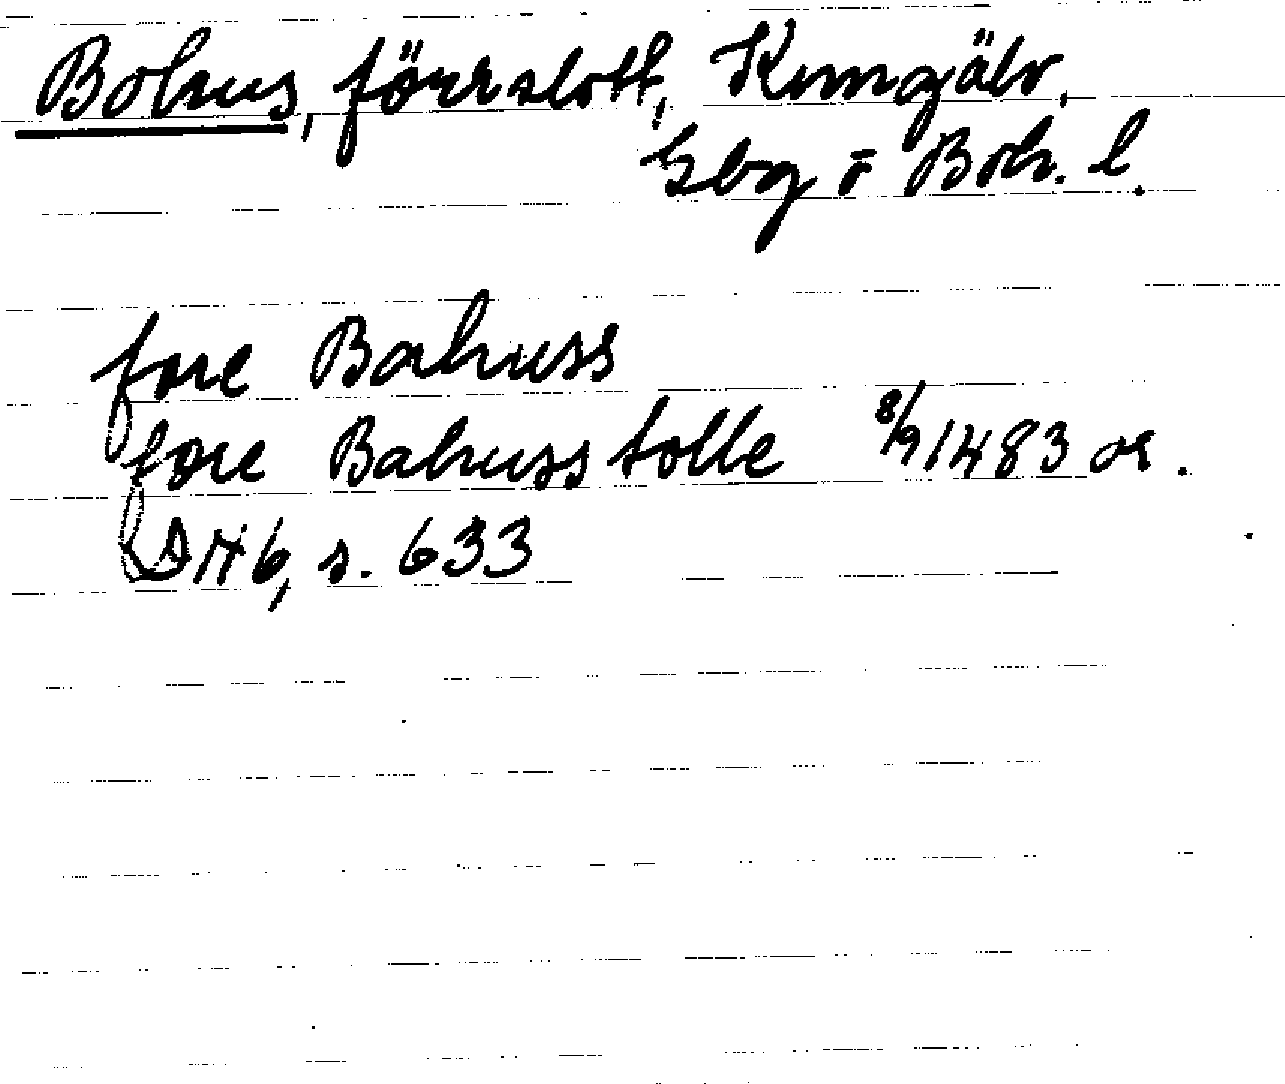 Bohus, förr slott, Kungälv,
Gbg o Boh. l.
fore Bahuss
fore Bahuss tolle 8/9 1483 or.
DN 6, s. 633